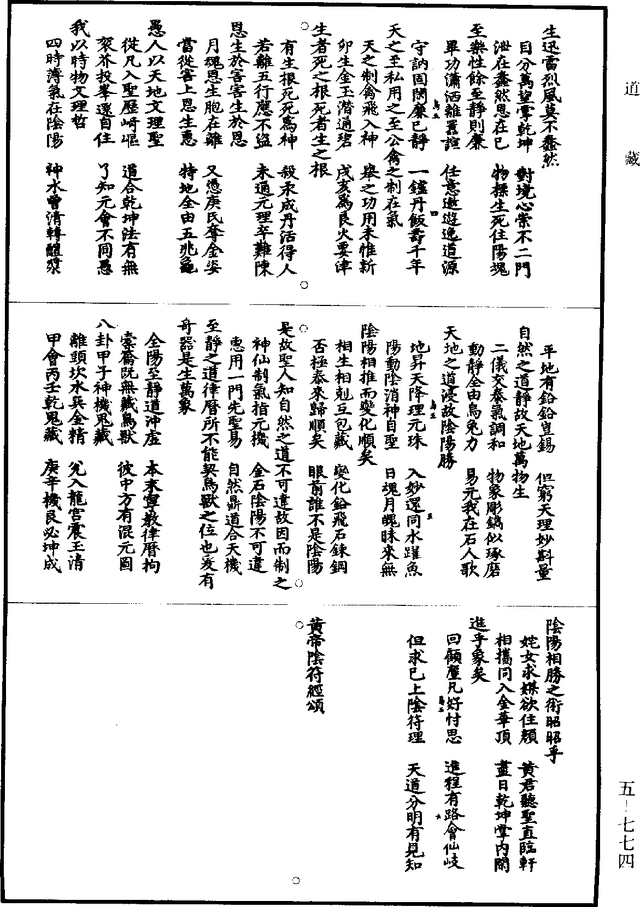 道藏
生迅雷烈風莫不蠢然
日分萬望霽乾坤　對境心常不二門
泄在蠢然恩在已　物探生死住陽魂
至樂性餘至靜則廉
畢功瀟洒離囂諠　任意遨遊逸道源
守訥固閉廉已靜　一鑪丹飯壽千年
天之至私用之至公禽之制在氣
天之制禽飛入神　槩之功用未惟新
卯生金玉潛通碧　戌亥爲艮火要津
生者死之根死者生之根
有生根死死爲神　殺汞成丹活得人
若離五行應不盜　未通元理卒難陳
恩生於害害生於恩
月魂恩生胞在離　又愚庚氏奪金姿
當從害上恩生惠　特地全由五兆龜
愚人以天地文理聖
從凡入聖歷崎嶇　道合乾坤法有無
衮芥投峯還自住　了知元會不同愚
我以時物文理哲
四時薄氣在陰陽　神水曾清轉醍漿
平地有鉛鉛豈錫　但窮天理妙斟量
自然之道靜故天地萬物生
二儀交泰氣調和　物象彫鎬似琢磨
動靜全由烏兔力　易元我在石人歌
天地之道浸故陰陽勝
地昇天降理元珠　入妙還同水躍魚
陽動陰消神自聖　日魂月魄昧來無
陰陽相推而變化順矣
相生相剋互包藏　變化鉛飛石鍊鋼
否極泰來歸順矣　眼前誰不是陰陽
是故聖人知自然之道不可違故因而制之
神仙制氣指元機　金石陰陽不可違
惠用一門先聖易　自然鼎道合天機
至靜之道律曆所不能契鳥獸之位也爰有
奇器是生萬象
全陽至靜道沖虛　本末寧教律曆拘
崇喬既無藏鳥獸　彼中方有混元圖
八卦甲子神機鬼藏
離頭坎水與金精　兌入龍宮震玉清
甲會丙壬乾鬼藏　庚辛機艮必坤成
陰陽相勝之術昭昭乎
姹女求媒欲住顏　黃君聽聖直臨軒
相攜同入金華頂　晝日乾坤掌內閑
進乎象矣
回顧塵凡好忖思　進程有路會仙岐
但求已上陰符理　天道分明有見知
黃帝陰符經頌
五–七七四